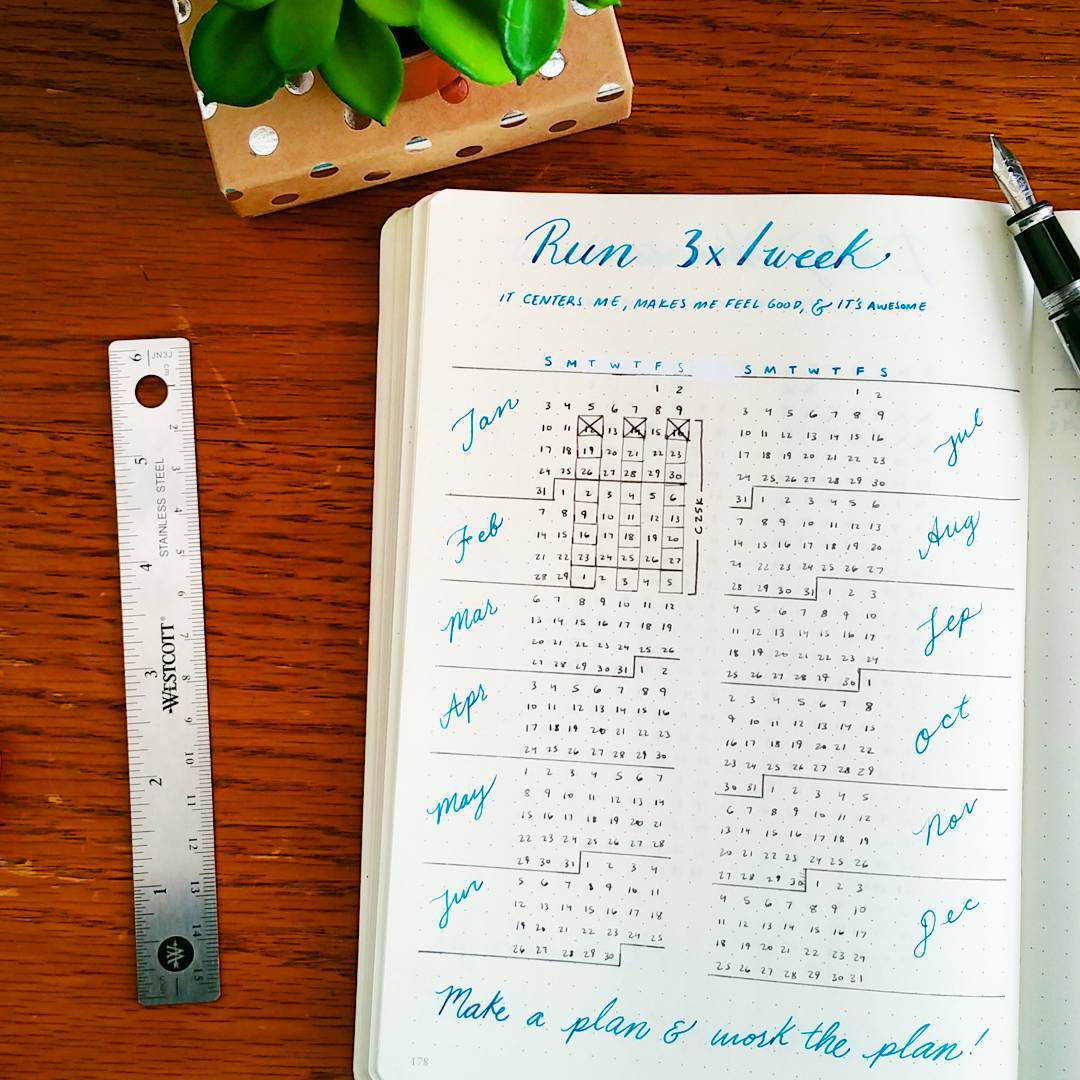 Run 3x/week
IT CENTERS ME, MAKES ME FEEL GOOD, & IT'S AWESOME
S M T W T F S
1 2
Jan
3 4 5 6 7 8 9
10 11 12 13 14 15 16
17 18 19 20 21 22 23
24 25 26 27 28 29 30
31 1 2 3 4 5 6
Feb
7 8 9 10 11 12 13
14 15 16 17 18 19 20
21 22 23 24 25 26 27
28 29 1 2 3 4 5
C25K
Mar
6 7 8 9 10 11 12
13 14 15 16 17 18 19
20 21 22 23 24 25 26
27 28 29 30 31 1 2
Apr
3 4 5 6 7 8 9
10 11 12 13 14 15 16
17 18 19 20 21 22 23
24 25 26 27 28 29 30
May
1 2 3 4 5 6 7
8 9 10 11 12 13 14
15 16 17 18 19 20 21
22 23 24 25 26 27 28
29 30 31 1 2 3 4
Jun
5 6 7 8 9 10 11
12 13 14 15 16 17 18
19 20 21 22 23 24 25
26 27 28 29 30
S M T W T F S
1 2
Jul
3 4 5 6 7 8 9
10 11 12 13 14 15 16
17 18 19 20 21 22 23
24 25 26 27 28 29 30
31 1 2 3 4 5 6
Aug
7 8 9 10 11 12 13
14 15 16 17 18 19 20
21 22 23 24 25 26 27
28 29 30 31 1 2 3
Sep
4 5 6 7 8 9 10
11 12 13 14 15 16 17
18 19 20 21 22 23 24
25 26 27 28 29 30 1
Oct
2 3 4 5 6 7 8
9 10 11 12 13 14 15
16 17 18 19 20 21 22
23 24 25 26 27 28 29
30 31 1 2 3 4 5
Nov
6 7 8 9 10 11 12
13 14 15 16 17 18 19
20 21 22 23 24 25 26
27 28 29 30 1 2 3
Dec
4 5 6 7 8 9 10
11 12 13 14 15 16 17
18 19 20 21 22 23 24
25 26 27 28 29 30 31
Make a plan & work the plan!
178
WESTCOTT®
STAINLESS STEEL
1 2 3 4 5 6
cm 1 2 3 4 5 6 7 8 9 10 11 12 13 14 15